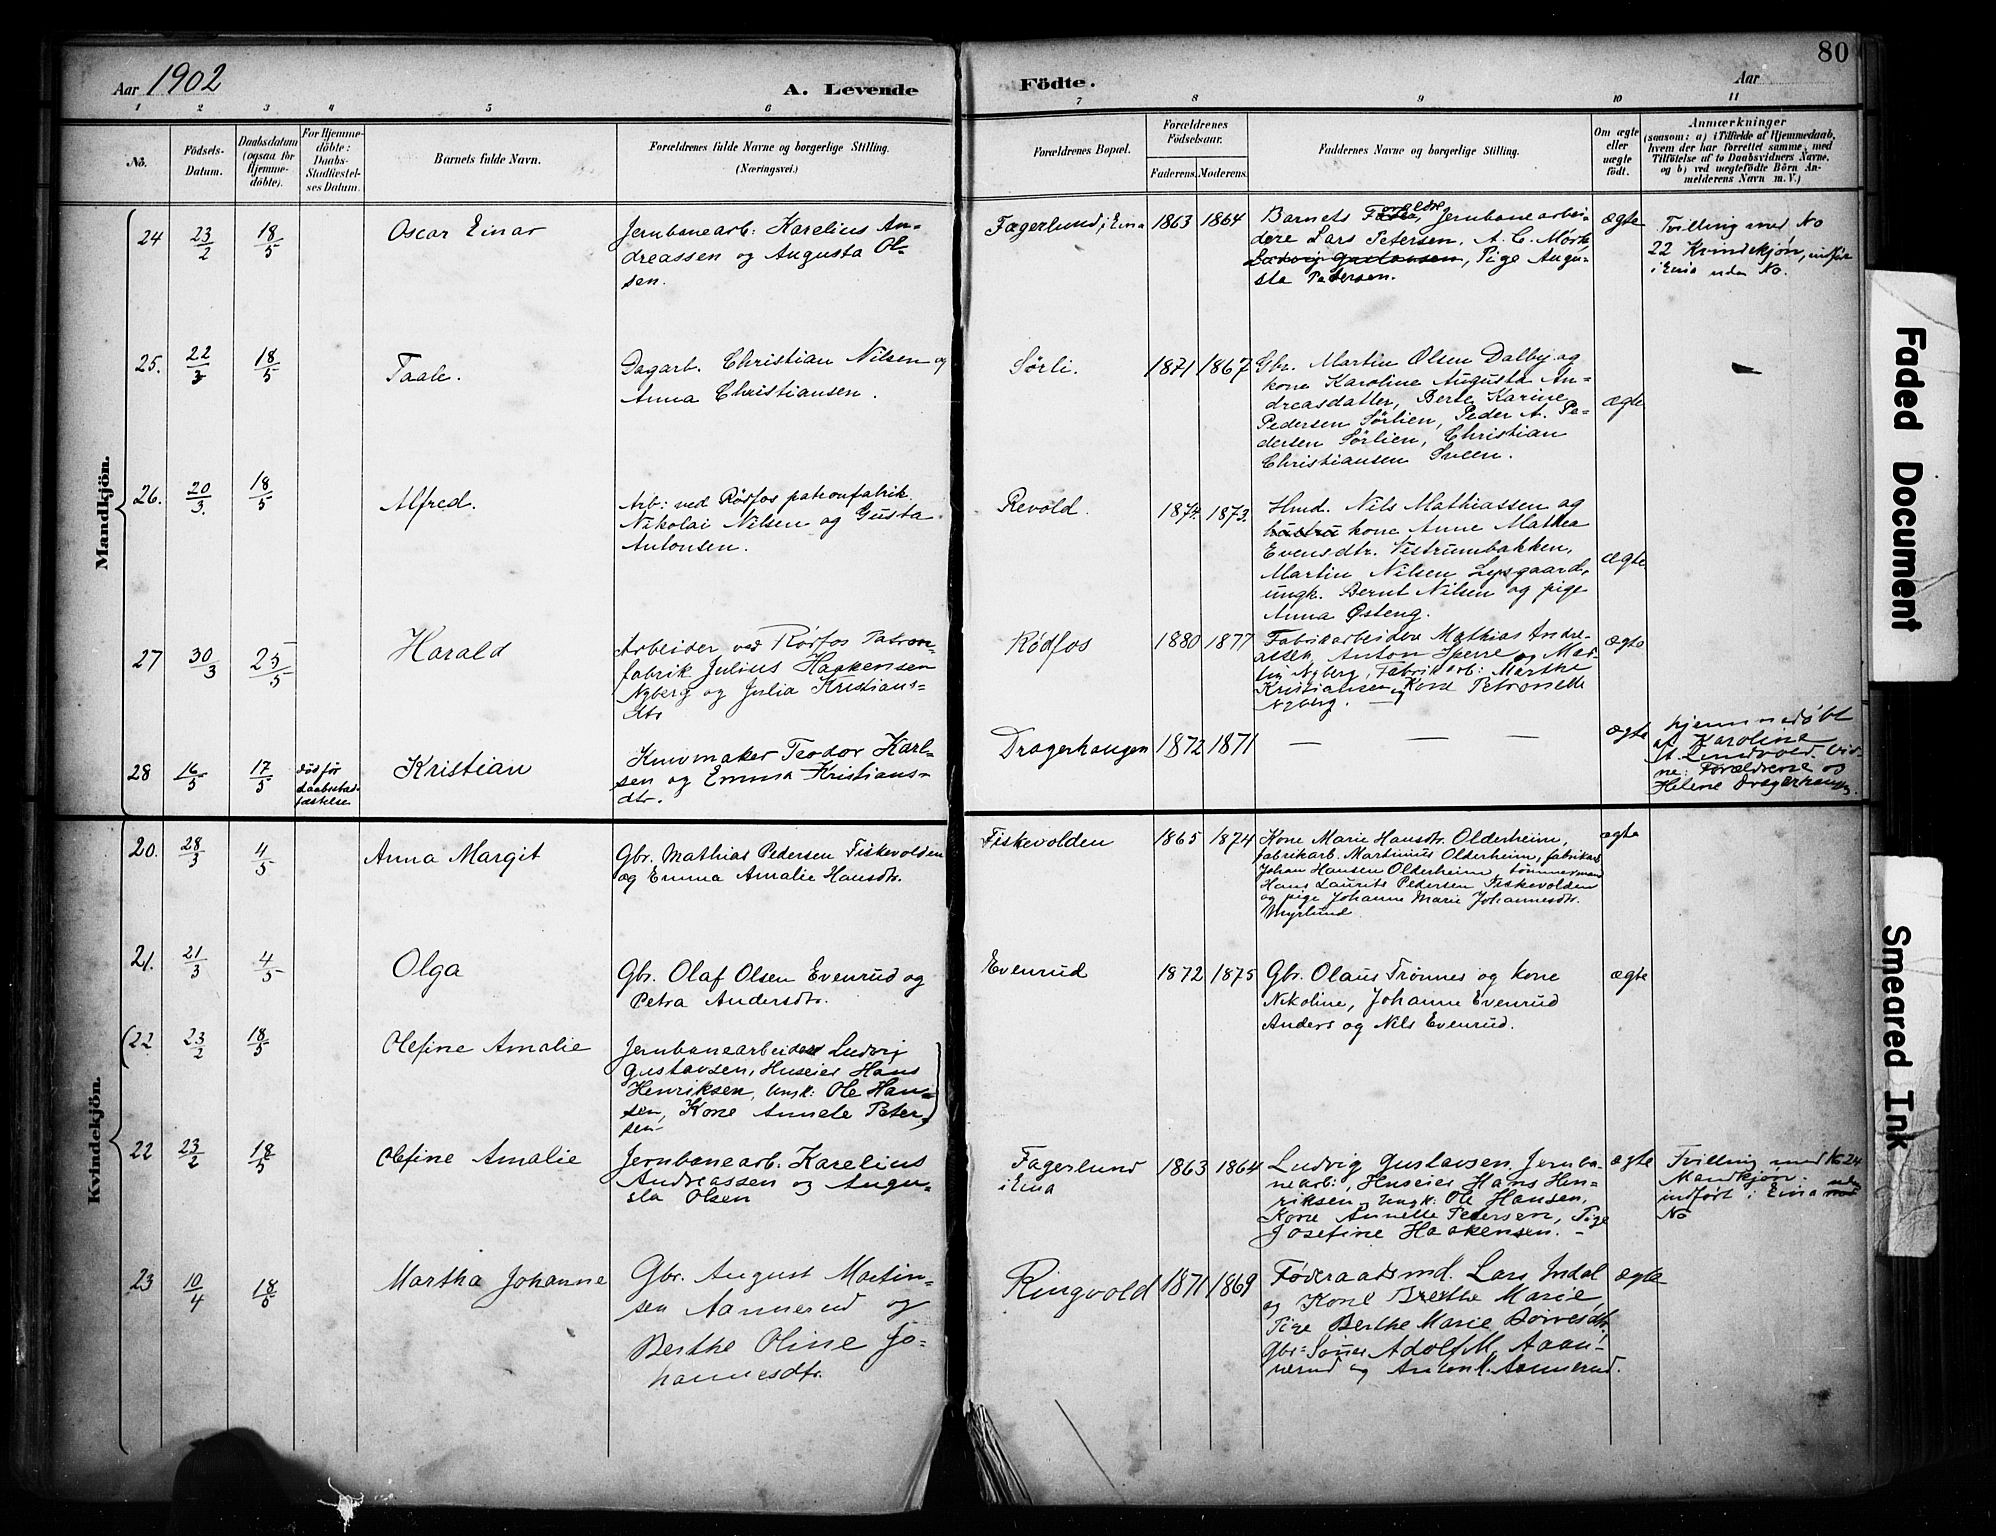 80
Aar 1902
A. Levende
Födte.
Aar
1 2 3 4 5 6 7 8 9 10 11
No.
Födsels-
Datum.
Daabsdatum
(ogsaa for
Hjemme-
döbte).
For Hjemme-
döbte:
Daabs-
Stadfæstel-
ses Datum.
Barnets fulde Navn.
Forældrenes fulde Navne og borgerlige Stilling.
(Næringsvei.)
Forældrenes Bopæl.
Forældrenes
Födselsaar.
Faderens. Moderens.
Faddernes Navne og borgerlige Stilling.
Om ægte
eller
uægte
födt.
Anmærkninger
(saasom: a) i Tilfælde af Hjemmedaab,
hvem der har forrettet samme, med
Tilföielse af to Daabsvidners Navne,
og b) ved uægtefödte Börn An-
melderens Navn m. V.)
Mandkjön.
24 23/2 18/5 Oscar Einar
Jernbanearb: Karelius An-
dreassen og Augusta Ol-
sen.
Fagerlund i Eina 1863 1864
Barnets Forældre, Jernbanearbei-
dere Lars Petersen, A. C. Mørk
Ludvig Gustavsen, Pige Augu-
sta Petersen.
ægte
Tvilling med No
22 Kvindekjøn, indført
i Eina uden No.
25. 22/3 18/5 Taale.
Dagarb. Christian Nilsen og
Anna Christiansen.
Sørli. 1871 1867
Gbr. Martin Olsen Dalby og
kone Karoline Augusta An-
dreasdatter, Berte Karine
Pedersen Sørlien, Peder A. Pe-
dersen Sørlien, Christian
Christiansen Sveen.
ægte
26. 20/3. 18/5 Alfred.
Arb: ved Rødfos patronfabrik
Nikolai Nilsen og Gusta
Antonsen.
Revold. 1874. 1873.
Hmd. Nils Mathiassen og
hustru kone Anne Mathea
Evensdtr. Vestrumbakken,
Martin Nilsen Lysgaard,
ungk. Bernt Nilsen og pige
Anna Østeng.
ægte
27 30/3 25/5 Harald
Arbeider ved Rødfos Patron-
fabrik Julius Haakensen
Nyberg og Julia Kristians-
dtr
Rødfos 1880 1877
Fabrikarbeidere Mathias Andre-
assen, Anton Sperre og Mar-
tin Nyberg, Fabrikarb: Marthe
Kristiansen og Kone Petronelle
Nyberg.
ægte
28 16/5 17/5 død før
daabsstad-
fæstelse
Kristian
Knivmaker Teodor Karl-
sen og Emma Kristians-
dtr.
Dragerhaugen 1872 1871 — — —
ægte
hjemmedøbt
af Karoline
A. Lundvold. Vid-
ne: Forældrene og
Helene Dragerhaugen.
Kvindekjön.
20. 28/3 4/5 Anna Margit
Gbr. Mathias Pedersen Fiskevolden
og Emma Amalie Hansdtr.
Fiskevolden 1865 1874
Kone Marie Hansdtr. Olderheim,
fabrikarb. Martinius Olderheim, fabrikarb
Johan Hansen Olderheim, tømmermand
Hans Laurits Pedersen Fiskevolden
og pige Johanne Marie Johannesdtr.
Myrlund.
ægte
21. 21/3 4/5 Olga
Gbr. Olaf Olsen Evenrud og
Petra Andersdtr.
Evenrud 1872 1875
Gbr. Olaus Trønnes og kone
Nikoline, Johanne Evenrud
Anders og Nils Evenrud.
ægte
(22 23/2 18/5 Olefine Amalie
Jernbanearbeider Ludvig
Gustavsen, Huseier Hans
Henriksen, Ungk: Ole Han-
sen, Kone Annele Peter-
sen)
22 23/2 18/5 Olefine Amalie
Jernbanearb: Karelius
Andreassen og Augu-
sta Olsen
Fagerlund
i Eina
1863 1864
Ludvig Gustavsen, Jernba-
nearb:, Huseier Hans Hen-
riksen, Ungk: Ole Hansen,
Kone Annelle Petersen, Pige
Josefine Haakensen. -
ægte
Tvilling med No 24
Mandkjøn.
indført i Eina uden
No
23 10/4 18/5 Martha Johanne
Gbr. August Martin-
sen Aannerud og
Berthe Oline Jo-
hannesdtr.
Ringvold 1871 1869
Føderaadsmd. Lars Indal
og Kone Brethe Marie,
Pige Berthe Marie Børvesdtr.
Gbr-Sønner Adolf M. Aaan-
nerud og Anton M. Aannerud.
ægte
Faded Document
Smeared Ink